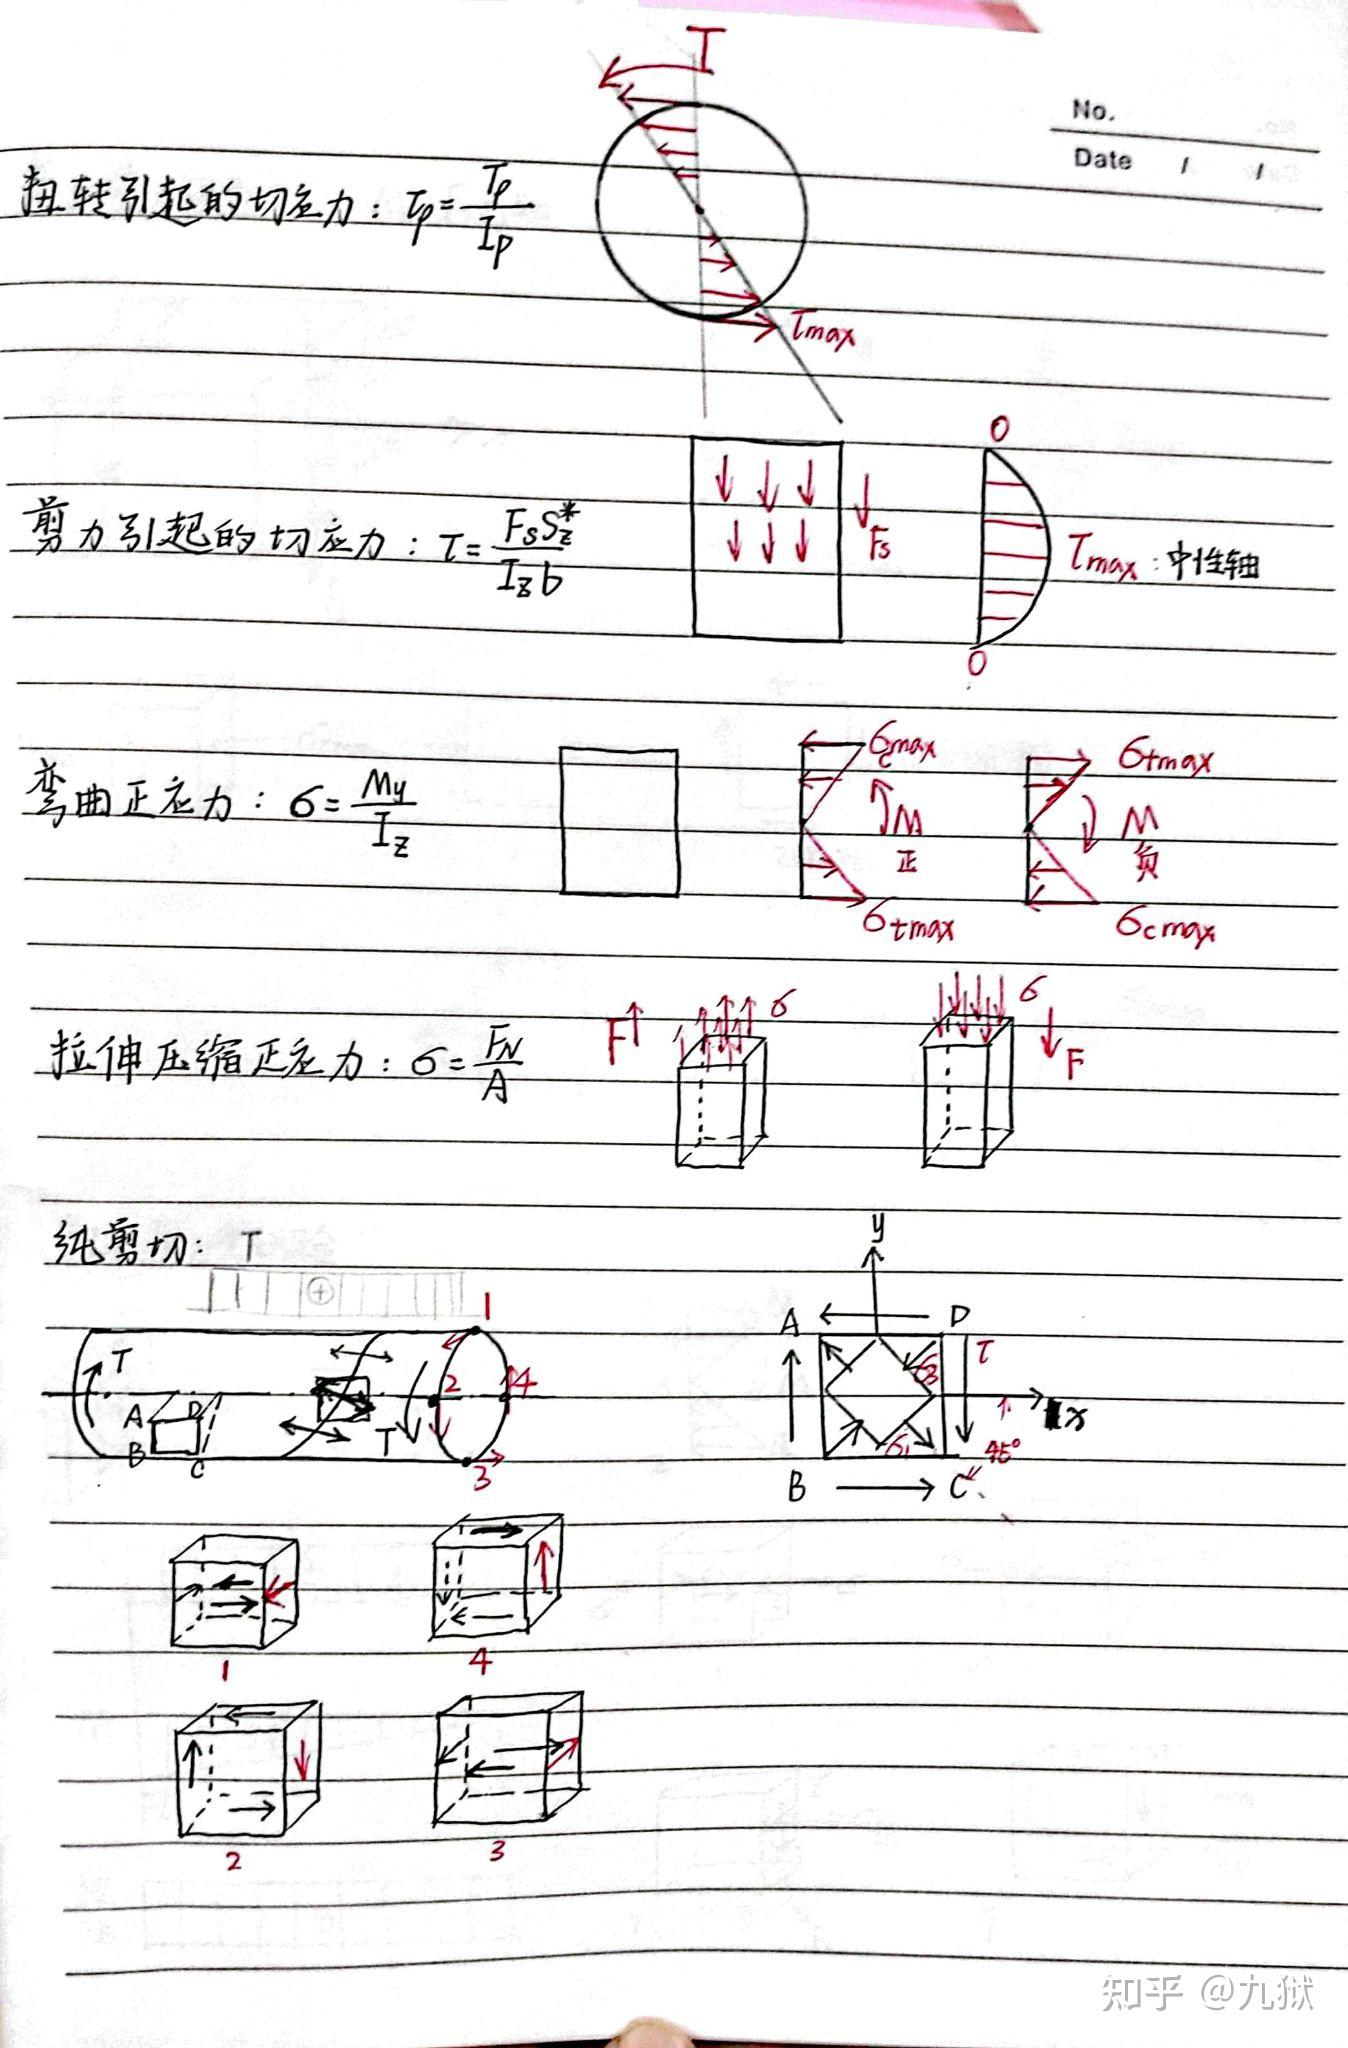 T
No.
Date / /
扭转引起的切应力: τρ=Tρ/Iρ
τmax
0
剪力引起的切应力: τ=FsSz*/Izb
Fs
τmax:中性轴
0
弯曲正应力: σ=My/Iz
σcmax
M
正
σtmax
σtmax
M
负
σcmax
拉伸压缩正应力: σ=FN/A
F
σ
σ
F
纯剪切: T
+
1
T
2
4
A
D
B
C
T
3
y
A
D
τ
σ3
x
σ1
45°
B
C
1
4
2
3
知乎 @九狱